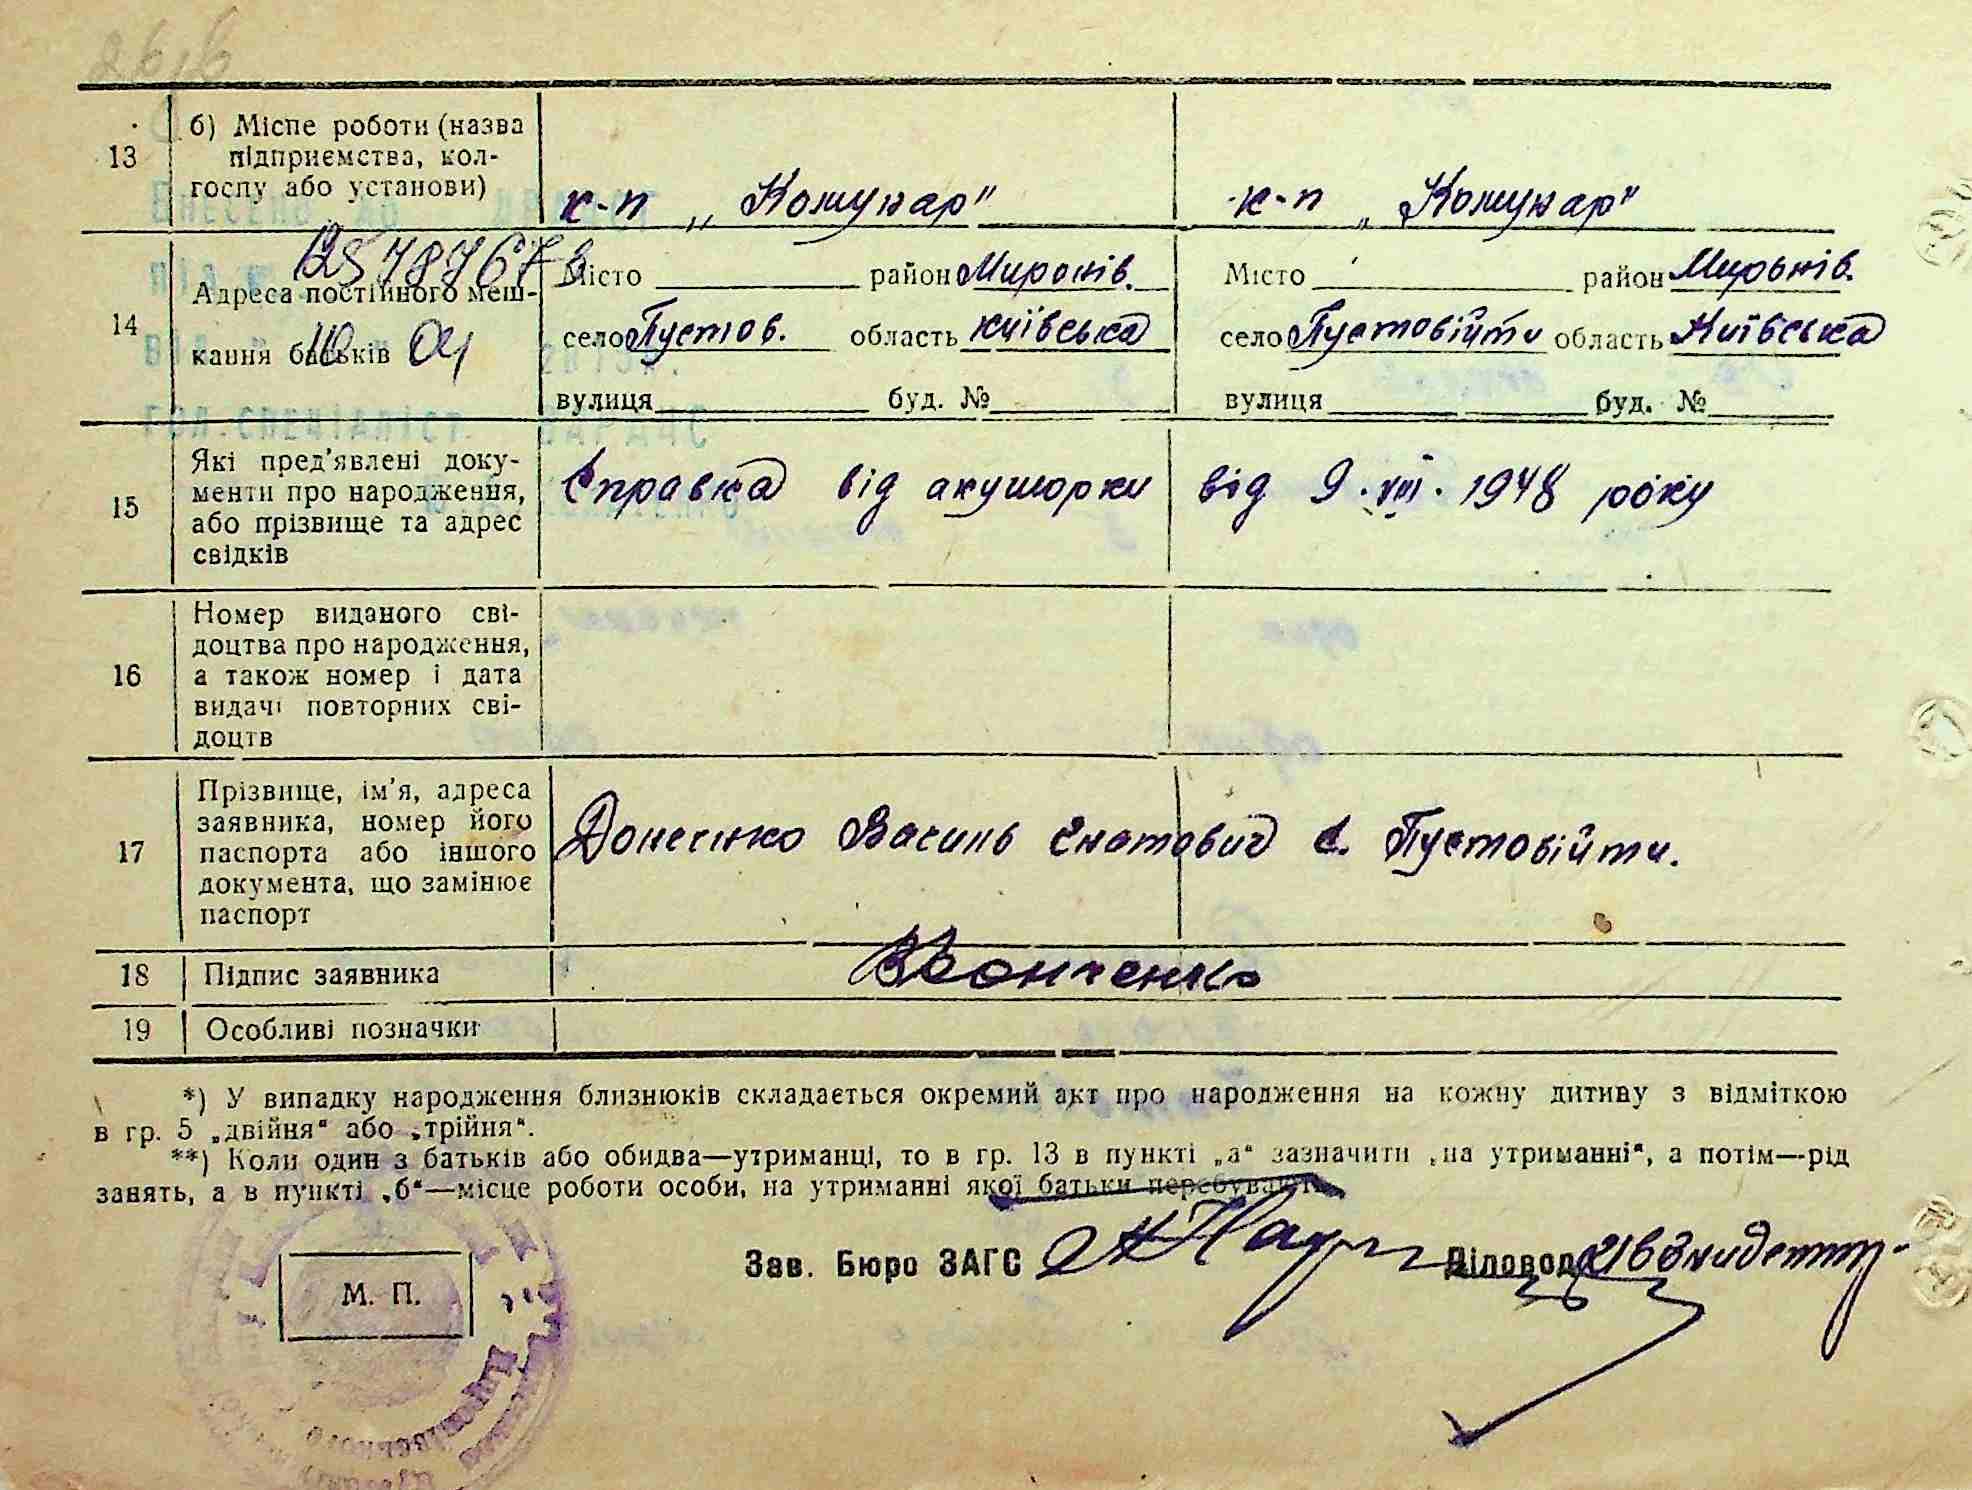 13 б) Місце роботи (назва
підприємства, кол-
госпу або установи)
к-п „Комунар" к-п „Комунар"
Внесено до ДРАЦСГ
14 Адреса постійного меш-
кання батьків
Місто район Миронів. Місто район Миронів.
село Пустов. область Київська село Пустовійти область Київська
вулиця буд. № вулиця буд. №
гол.спеціаліст
15 Які пред'явлені доку-
менти про народження,
або прізвище та адрес
свідків
Справка від акушорки від 9. VIII. 1948 року
16 Номер виданого сві-
доцтва про народження,
а також номер і дата
видачі повторних сві-
доцтв
17 Прізвище, ім'я, адреса
заявника, номер його
паспорта або іншого
документа, що замінює
паспорт
Василь с. Пустовійти.
18 Підпис заявника
19 Особливі позначки
*) У випадку народження близнюків складається окремий акт про народження на кожну дитину з відміткою
в гр. 5 „двійня" або „трійня".
**) Коли один з батьків або обидва—утриманці, то в гр. 13 в пункті „а" зазначити „на утриманні", а потім—рід
занять, а в пункті „б"—місце роботи особи, на утриманні якої батьки перебувають.
Зав. Бюро ЗАГС Діловод
М. П.